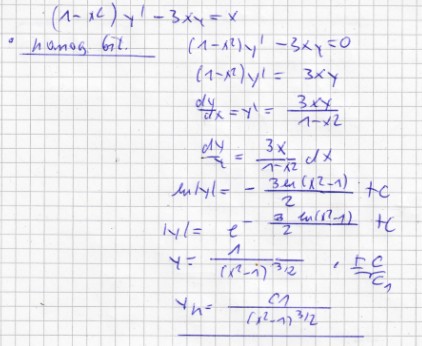 (1-x²) y' - 3xy = x
(1-x²)y' - 3xy = 0
(1-x²)y' = 3xy
dy/dx = y' = 3xy/1-x2
dy/y = 3x/1-x² dx
ln|y| = - 3ln(x²-1)/2 + c
|y| = e^- 3 ln(x²-1)/2 + c
y = 1/(x²-1)^3/2 · ±c/c1
yh = c1/(x²-1)^3/2